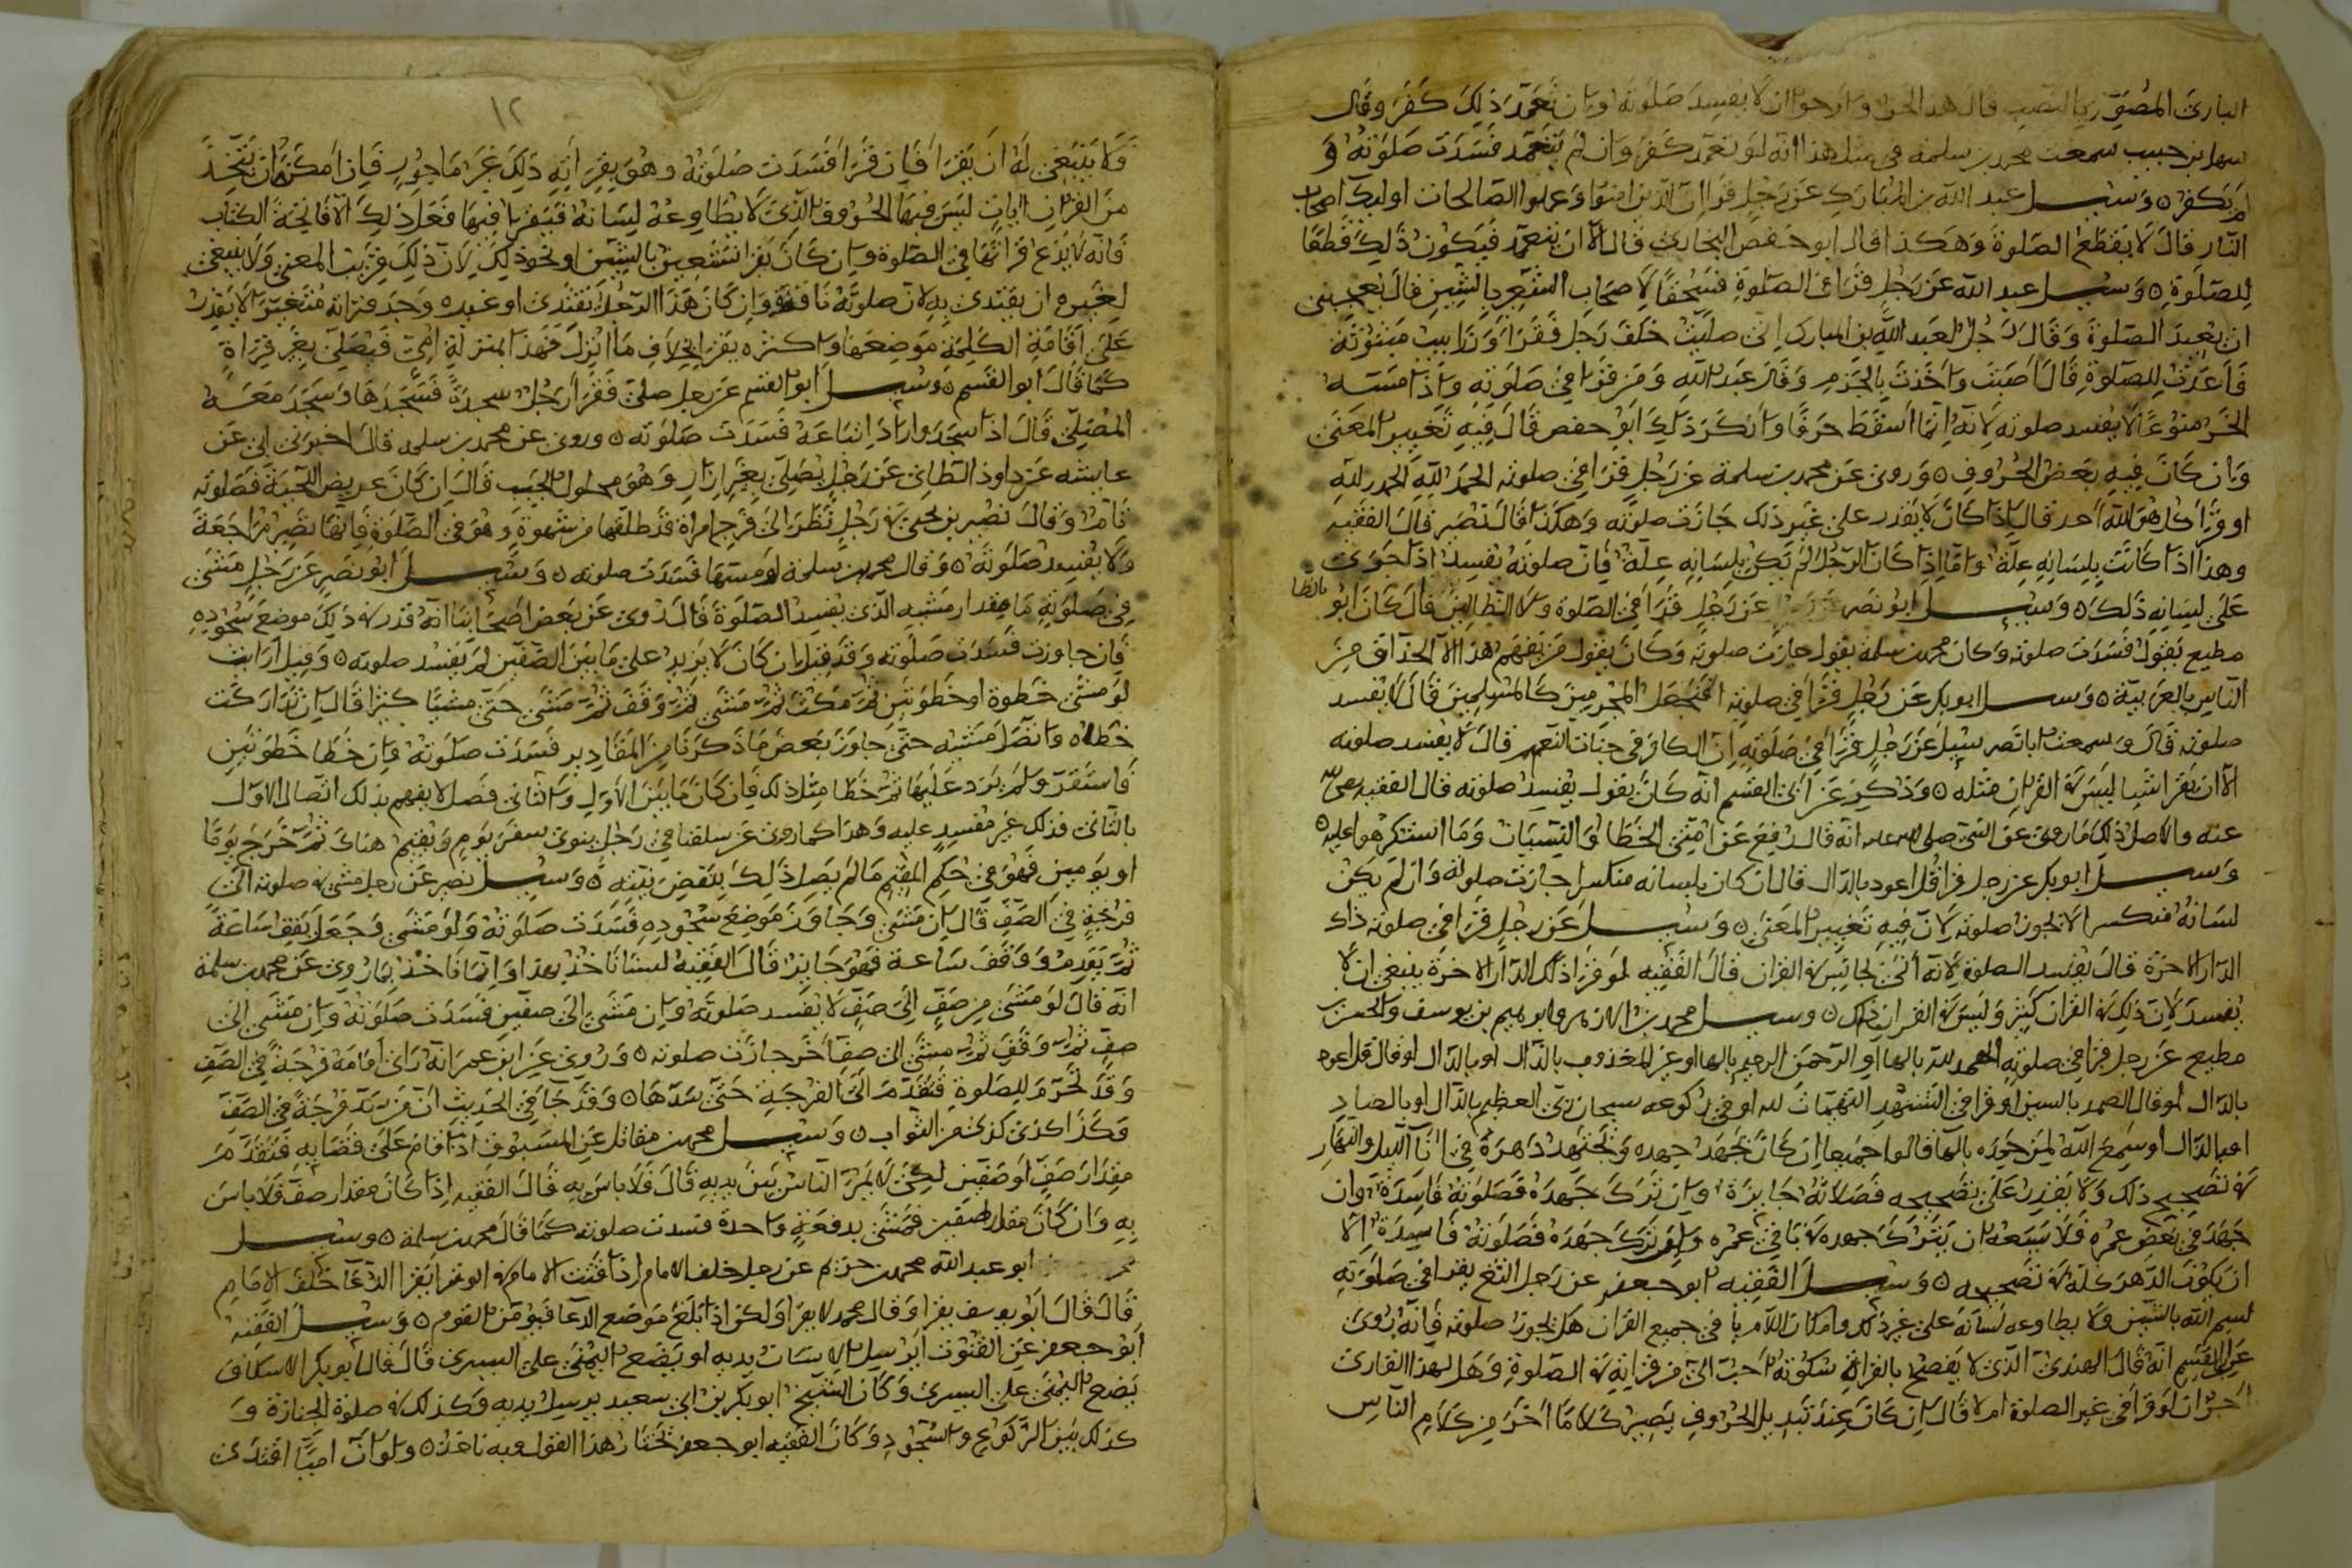 البارئ المصوَّر بالنصب قال هذا الخو وارجوا ان لا يفسد صلوته وان تعمد ذلك كفر وقال
سهل بن حبيب سمعت محمد بن سلمة في مثل هذا انه لو تعمد كفر وان لم يتعمد فسدت صلوته و
لم يكفر ه وسئل عبد الله بن المبارك عن رجل قرا ان الذين امنوا وعملوا الصالحات اوليك اصحاب
النار قال لا يقطع الصلوة وهكذا قال ابو حفص البخاري قال الا ان يتعمد فيكون ذلك قطعا
للصلوة ه وسئل عبد الله عن رجل قرا في الصلوة فسحقا لاصحاب الشعير بالشين قال يعجبني
ان يعيد الصلوة وقال رجل لعبد الله بن المبارك اني صليت خلف رجل فقرا وزرابيب مبثوثة
فاعدت الصلوة قال اصبت واخذت بالحزم وقال عبد الله ومن قرا في صلوته واذا مسه
الخير منوعا لا يفسد صلوته لانه انما اسقط حرفا وانكر ذلك ابو حفص قال فيه تغيير المعنى
وان كان فيه بعض الحروف ه وروي عن محمد بن سلمة عن رجل قرا في صلوته الحمد لله الحمد لله
او قرا كل هو الله احد قال اذا كان لا يقدر على غير ذلك جازت صلوته وهكذا قال نصير قال الفقيه
وهذا اذا كانت بلسانه علة واما اذا كان الرجل لم يكن بلسانه علة فان صلوته تفسد اذا جرى
على لسانه ذلك ه وسئل ابو نصر عن رجل قرا في الصلوة ولا الظالين قال كان ابو
بالظا
مطيع يقول فسدت صلوته وكان محمد بن سلمة يقول جازت صلوته وكان يقول من يفهم هذا الا الحذاق من
الناس بالعربية ه وسئل ابو بكر عن رجل قرا في صلوته افنجعل المجرمين كالمسلمين قال لا يفسد
صلوته قال وسمعت ابا نصر سئل عن رجل قرا في صلوته ان الكافر في جنات النعيم قال لا يفسد صلوته
الا ان يقرا شيا ليس في القران مثله ه وذكر عن ابي القسم انه كان يقول يفسد صلوته قال الفقيه رضي الله
عنه والاصل ذلك ما روي عن النبي صلى الله عليه انه قال رفع عن امتي الخطا والنسيان وما استكرهوا عليه ه
وسئل ابو بكر عن رجل قرا قل اعود بالدال قال ان كان بلسانه منكسرا جازت صلوته وان لم يكن
لسانه منكسرا لا يجوز صلوته لان فيه تغيير المعنى ه وسئل عن رجل قرا في صلوته ذاك
الدار الاخرة قال يفسد الصلوة لانه اتى بما ليس في القران قال الفقيه لو قرا ذلك الدار الاخرة ينبغي ان لا
يفسد لان ذلك في القران كثير وليس في القران ذاك ه وسئل محمد بن الازهر وابو هيم بن يوسف والحسن بن
مطيع عن رجل قرا في صلوته الهمد لله بالها او الرحمن الرهيم بالها او غير المغذوب بالذال او بالدال او قال قل اعود
بالدال او قال الصمد بالسين او قرا في التشهد التهيات لله او في ركوعه سبحان ربي العظيم بالذال او بالصاد
او بالدال او سمع الله لمن حمده بالها قالوا جميعا ان كان يجهد جهده ويجتهد دهره في انا الليل والنهار
في تصحيح ذلك ولا يقدر على تصحيحه فصلاته جايزة وان ترك جهده فصلوته فاسدة وان
جهد في بعض عمره فلا يسعه ان يترك جهده في باقي عمره ولو ترك جهده فصلوته فاسدة الا
ان يكون الدهر كله في تصحيحه ه وسئل الفقيه ابو جعفر عن رجل الثغ يقرا في صلوته
بسم الله بالشين ولا يطاوعه لسانه على غير ذلك وامكان اللام يا في جميع القران هل يجوز صلوته فانه روي
عن ابي القسم انه قال الهندي الذي لا يفصح بالقراة سكوته احب الي من قراته في الصلوة وهل لهذا القارئ
اجر ان لو قرا في غير الصلوة ام لا قال ان كان عند تبديل الحروف يصير كلاما اخر من كلام الناس
١٢
فلا ينبغي له ان يقرا فان قرا فسدت صلوته وهو بقراته ذلك غير ماجور فان امكنه ان يتخذ
من القران ايات ليس فيها الحروف الذي لا يطاوعه لسانه فيقرا فيها فعل ذلك الا فاتحة الكتاب
فانه لا يدع قراتها في الصلوة وان كان يقرا نشتعين بالشين او نحو ذلك لان ذلك قريب المعنى ولا ينبغي
لغيره ان يقتدي به لان صلوته ناقصة وان كان هذا الرجل يقتدي او غيره وجد قراته متغيرا لا يقدر
على اقامة الكلمة موضعها واكثره يقرا بخلاف ما انزل فهذا بمنزلة امي فيصلي بغير قراة
كما قال ابو القسم ه وسئل ابو القسم عن رجل صلى فقرا رجل سجدة فسجدها وسجد معه
المصلي قال اذا سجد واراد اتباعه فسدت صلوته ه وروي عن محمد بن سلمه قال اخبرني ابي عن
عايشه عن داود الطاي عن رجل يصلي بغير ازار وهو محلول الجيب قال ان كان عريض اللحية فصلوته
تامة وقال نصير بن يحيى في رجل نظر الى فرج امراة قد طلقها من شهوة وهو في الصلوة فانها تصير مراجعة
ولا يفسد صلوته ه وقال محمد بن سلمة لو مسها فسدت صلوته ه وسئل ابو نصر عن رجل مشى
في صلوته ما مقدار مشيه الذي يفسد الصلوة قال روي عن بعض اصحابنا انه قدر في ذلك موضع سجوده
فان جاوزت فسدت صلوته وقد قيل ان كان لا يزيد على ما بين الصفين لم يفسد صلوته ه وقيل ارايت
لو مشى خطوة او خطوتين ثم مكث ثم مشى ثم وقف ثم مشى حتى مشيا كثيرا قال ان تداركت
خطاه واتصل مشيه حتى جاوز بعض ما ذكرنا من المقادير فسدت صلوته وان خطا خطوتين
فاستقر ولم يزد عليها ثم خطا مثل ذلك فان كان ما بين الاول والثاني فصل لا يفهم بذلك اتصال الاول
بالثاني فذلك غير مفسد عليه وهذا كما روي عن سلفنا في رجل ينوي سفر يوم ويقيم هناك ثم خرج يوما
او يومين فهو في حكم المقيم ما لم يصل ذلك بنقض نيته ه وسئل نصير عن رجل مشى في صلوته الى
فرجة في الصف قال ان مشى وجاوز موضع سجوده فسدت صلوته ولو مشى وجعل يقف ساعة
ثم يقدم ووقف ساعة فهو جايز قال الفقيه لسنا ناخذ بهذا وانما ناخذ بما روي عن محمد بن سلمة
انه قال لو مشى من صف الى صف لا يفسد صلوته وان مشى الى صفين فسدت صلوته وان مشى الى
صف ثم وقف ثم مشى الى صف اخر جازت صلوته ه وروي عن ابن عمر انه راى امامه فرجة في الصف
وقد تحرم للصلوة فتقدم الى الفرجة حتى سدها ه وقد جا في الحديث ان من سد فرجة في الصف
فكذا كذى كذى من الثواب ه وسئل محمد بن مقاتل عن المسبوق اذا قام على قضايه فتقدم
مقدار صف او صفين لكي لا يمر الناس بين يديه قال فلا باس به قال الفقيه اذا كان مقدار صف فلا باس
به وان كان مقدار صفين فمشى بدفعة واحدة فسدت صلوته كما قال محمد بن سلمة ه وسئل
ابو عبد الله محمد بن خزيم عن رجل خلف الامام اذا قنت الامام في الوتر ايقرا الدعا خلف الامام
قال قال ابو يوسف يقرا وقال محمد لا يقرا ولكن اذا بلغ موضع الدعا فيؤمن القوم ه وسئل الفقيه
ابو جعفر عن القنوت ايرسل الانسان يديه او يضع اليمنى على اليسرى قال قال ابو بكر الاسكاف
يضع اليمنى على اليسرى وكان الشيخ ابو بكر بن ابي سعيد يرسل يديه وكذلك في صلوة الجنازة و
كذلك بين الركوع والسجود وكان الفقيه ابو جعفر يختار هذا القول وبه ناخذ ه ولو ان اميا اقتدى